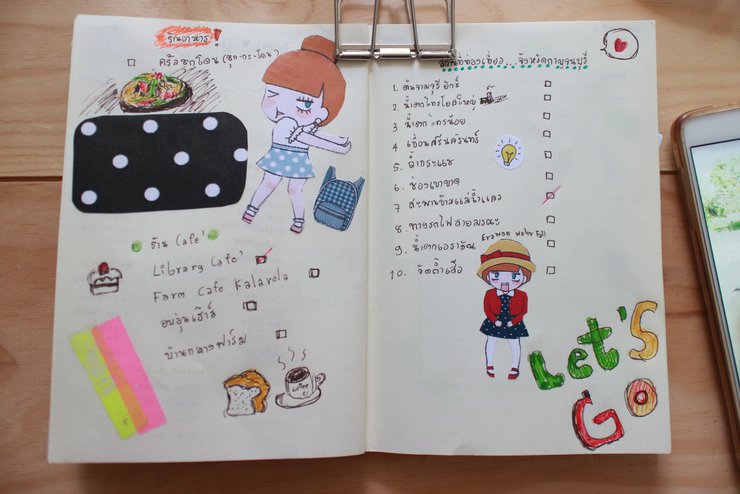 ร้านอาหาร!
ครัวชุกโดน (ชุก-กะ-โดน)
ร้าน Cafe'
Library Cafe'
Farm Cafe Kalavela
อบอุ่นเฮ้าส์
บ้านกลางฟาร์ม
coffee
สถานที่ท่องเที่ยว... จังหวัดกาญจนบุรี
1. ต้นจามจุรียักษ์
2. น้ำตกไทรโยคใหญ่
3 น้ำตกไทรน้อย
4 เขื่อนศรีนครินทร์
5. ถ้ำกระแซ
6. ช่องเขาขาด
7 สะพานข้ามแม่น้ำแคว
8. ทางรถไฟสายมรณะ
9. น้ำตกเอราวัณ Erawan water Fall
10. วัดถ้ำเสือ
Let's
Go